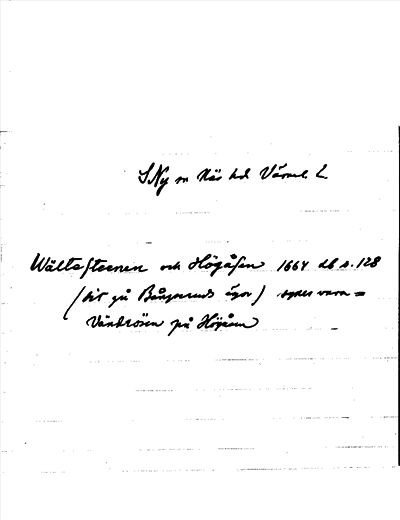 S Ny sn Näs hd Värml. L.
Wältesteenen och Högåsen 1664 db s. 128
(bit på ägor) synes vara =
Vändrösen på Högåsen